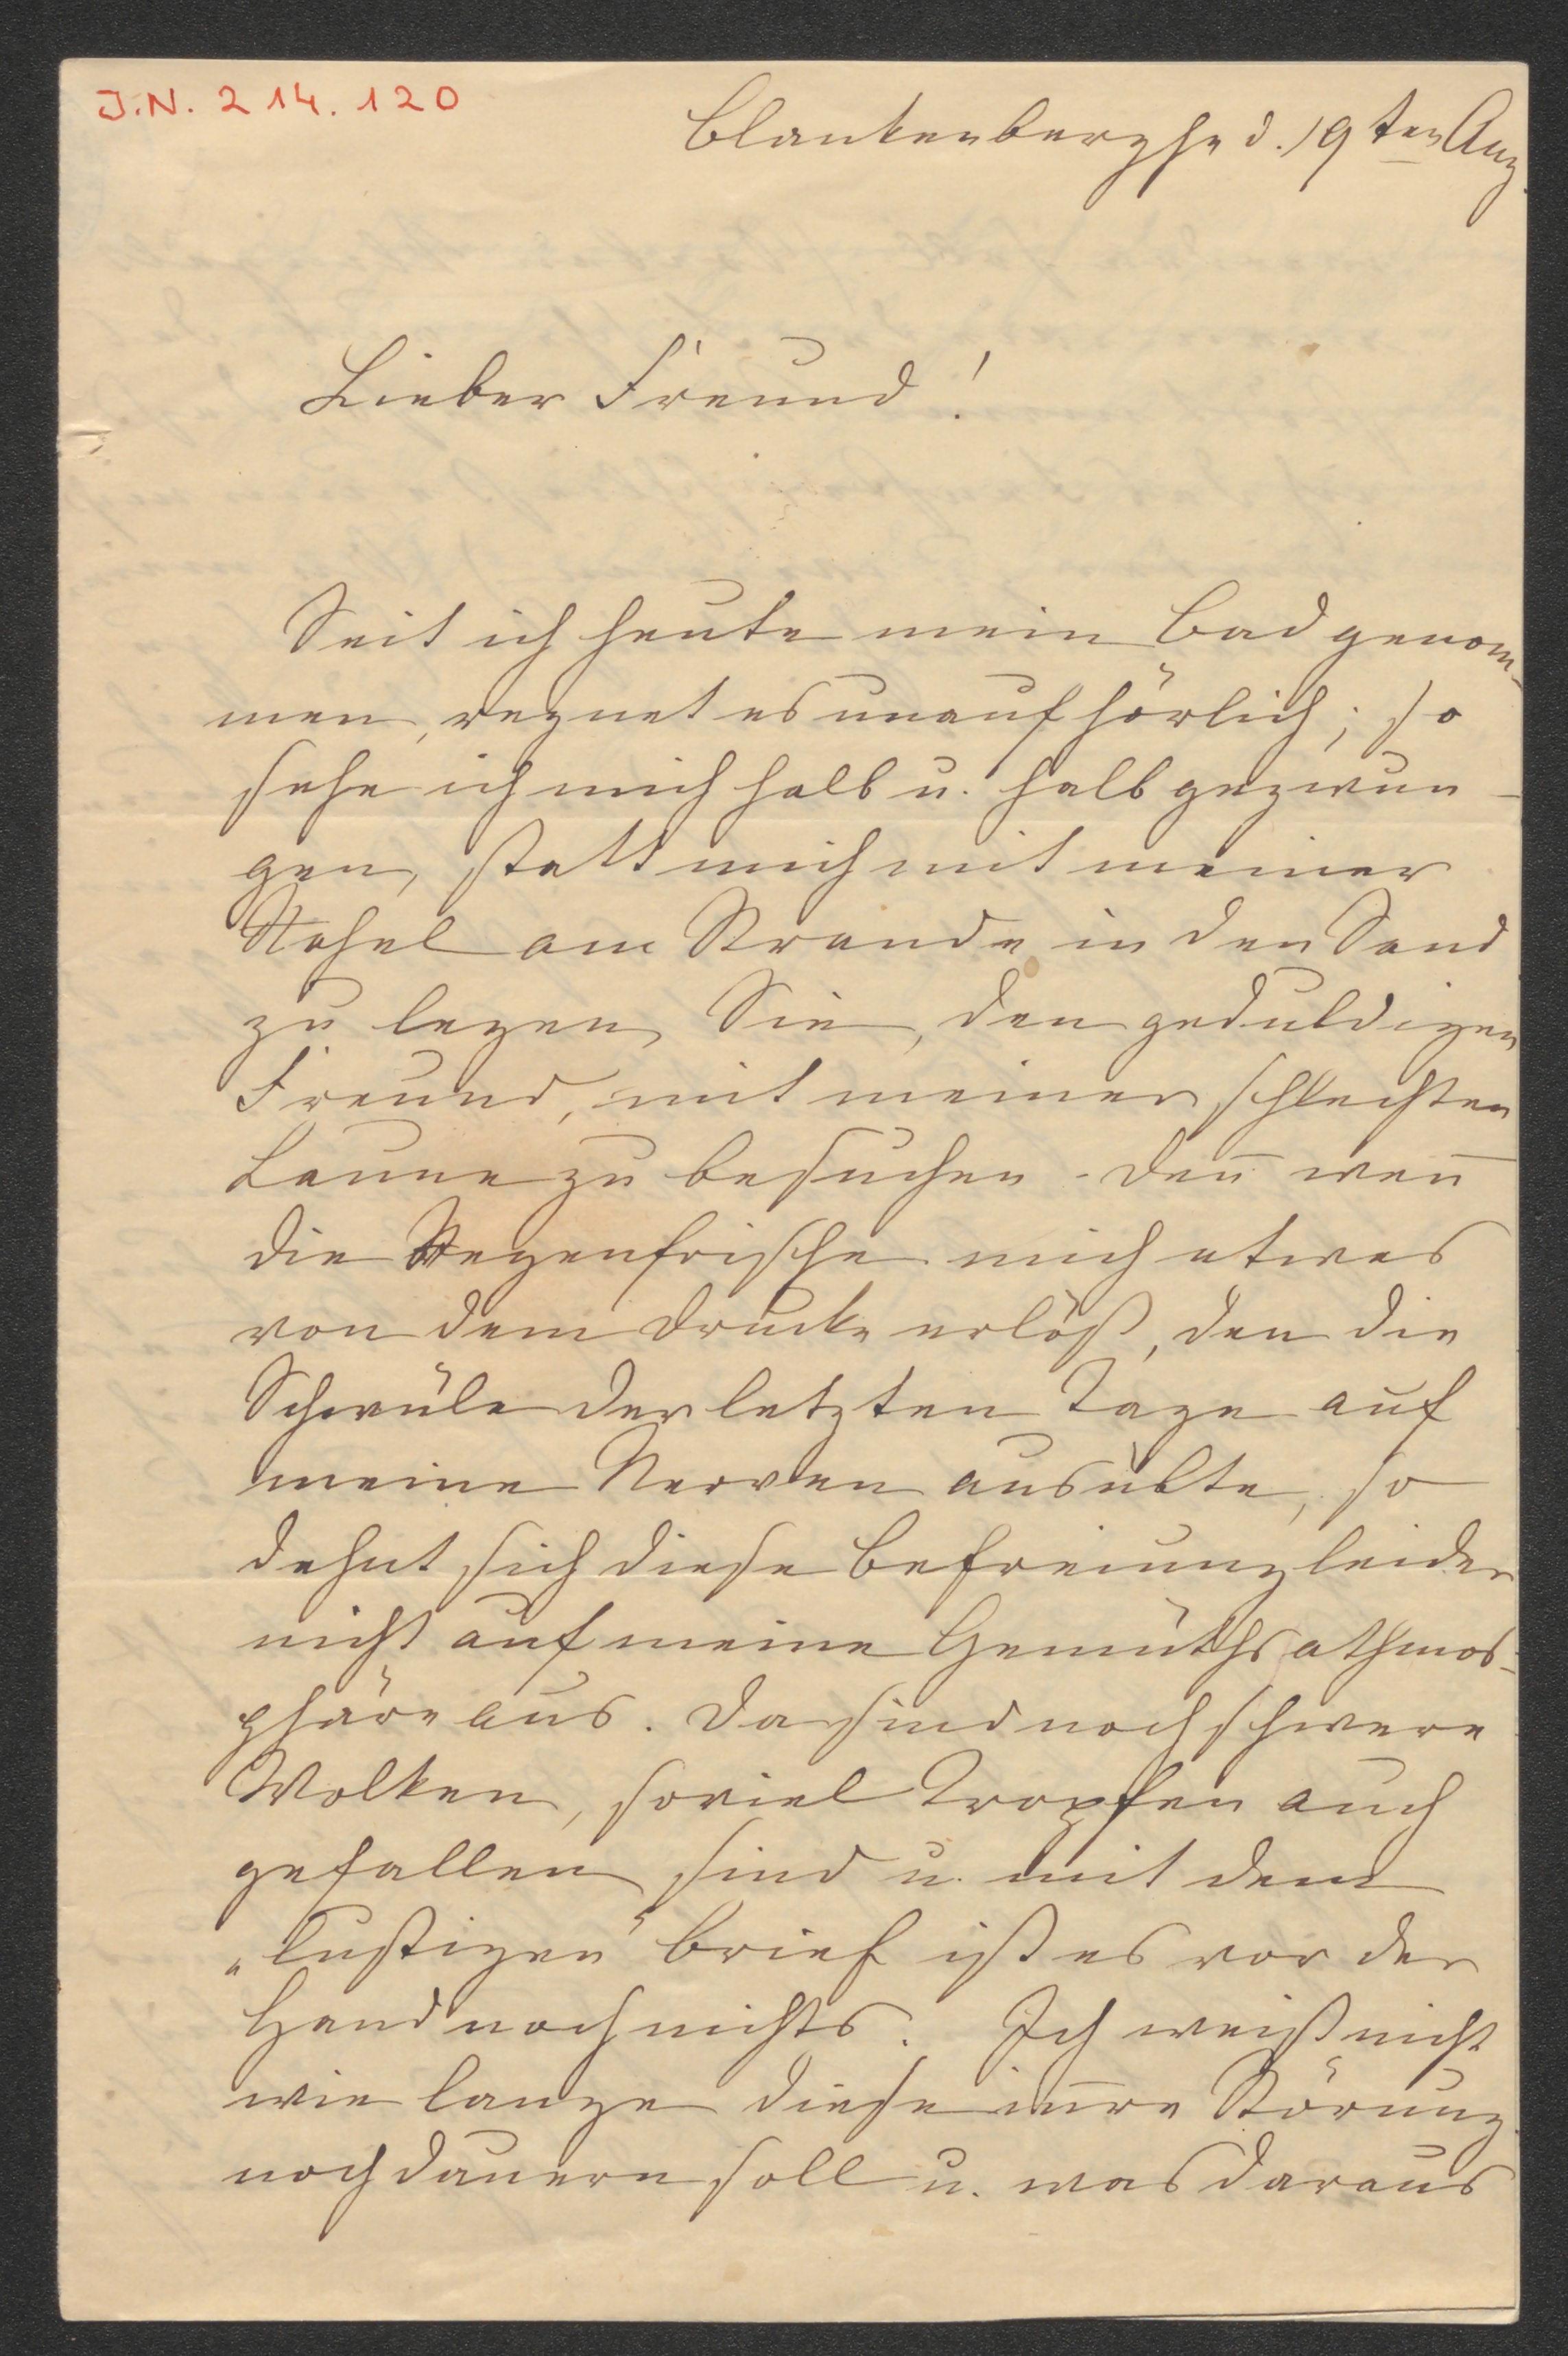 J.N. 214.120
Blankenberghe d. 19ten Aug.
Lieber Freund!
Seit ich heute mein Bad genom-
men, regnet es unaufhörlich; so
sehe ich mich halb u. halb gezwun-
gen, statt mich mit meiner
am Strande in den Sand
zu legen, Sie, den geduldigen
Freund, mit meiner schlechten
Laune zu besuchen. Den̄ wen̄
die Regenfrische mich etwas
von dem Drucke erlöst, den die
Schwüle der letzten Tage auf
meine Nerven ausübte, so
dehnt sich diese Befreiung leider
nicht auf meine Gemüthsathmos-
phäre aus. Da sind noch schwere
Wolken, soviel Tropfen auch
gefallen sind u. mit dem
„lustigen" Brief ist es vor der
Hand noch nichts. Ich weiß nicht
wie lange diese in̄re Störung
noch dauern soll u. was daraus